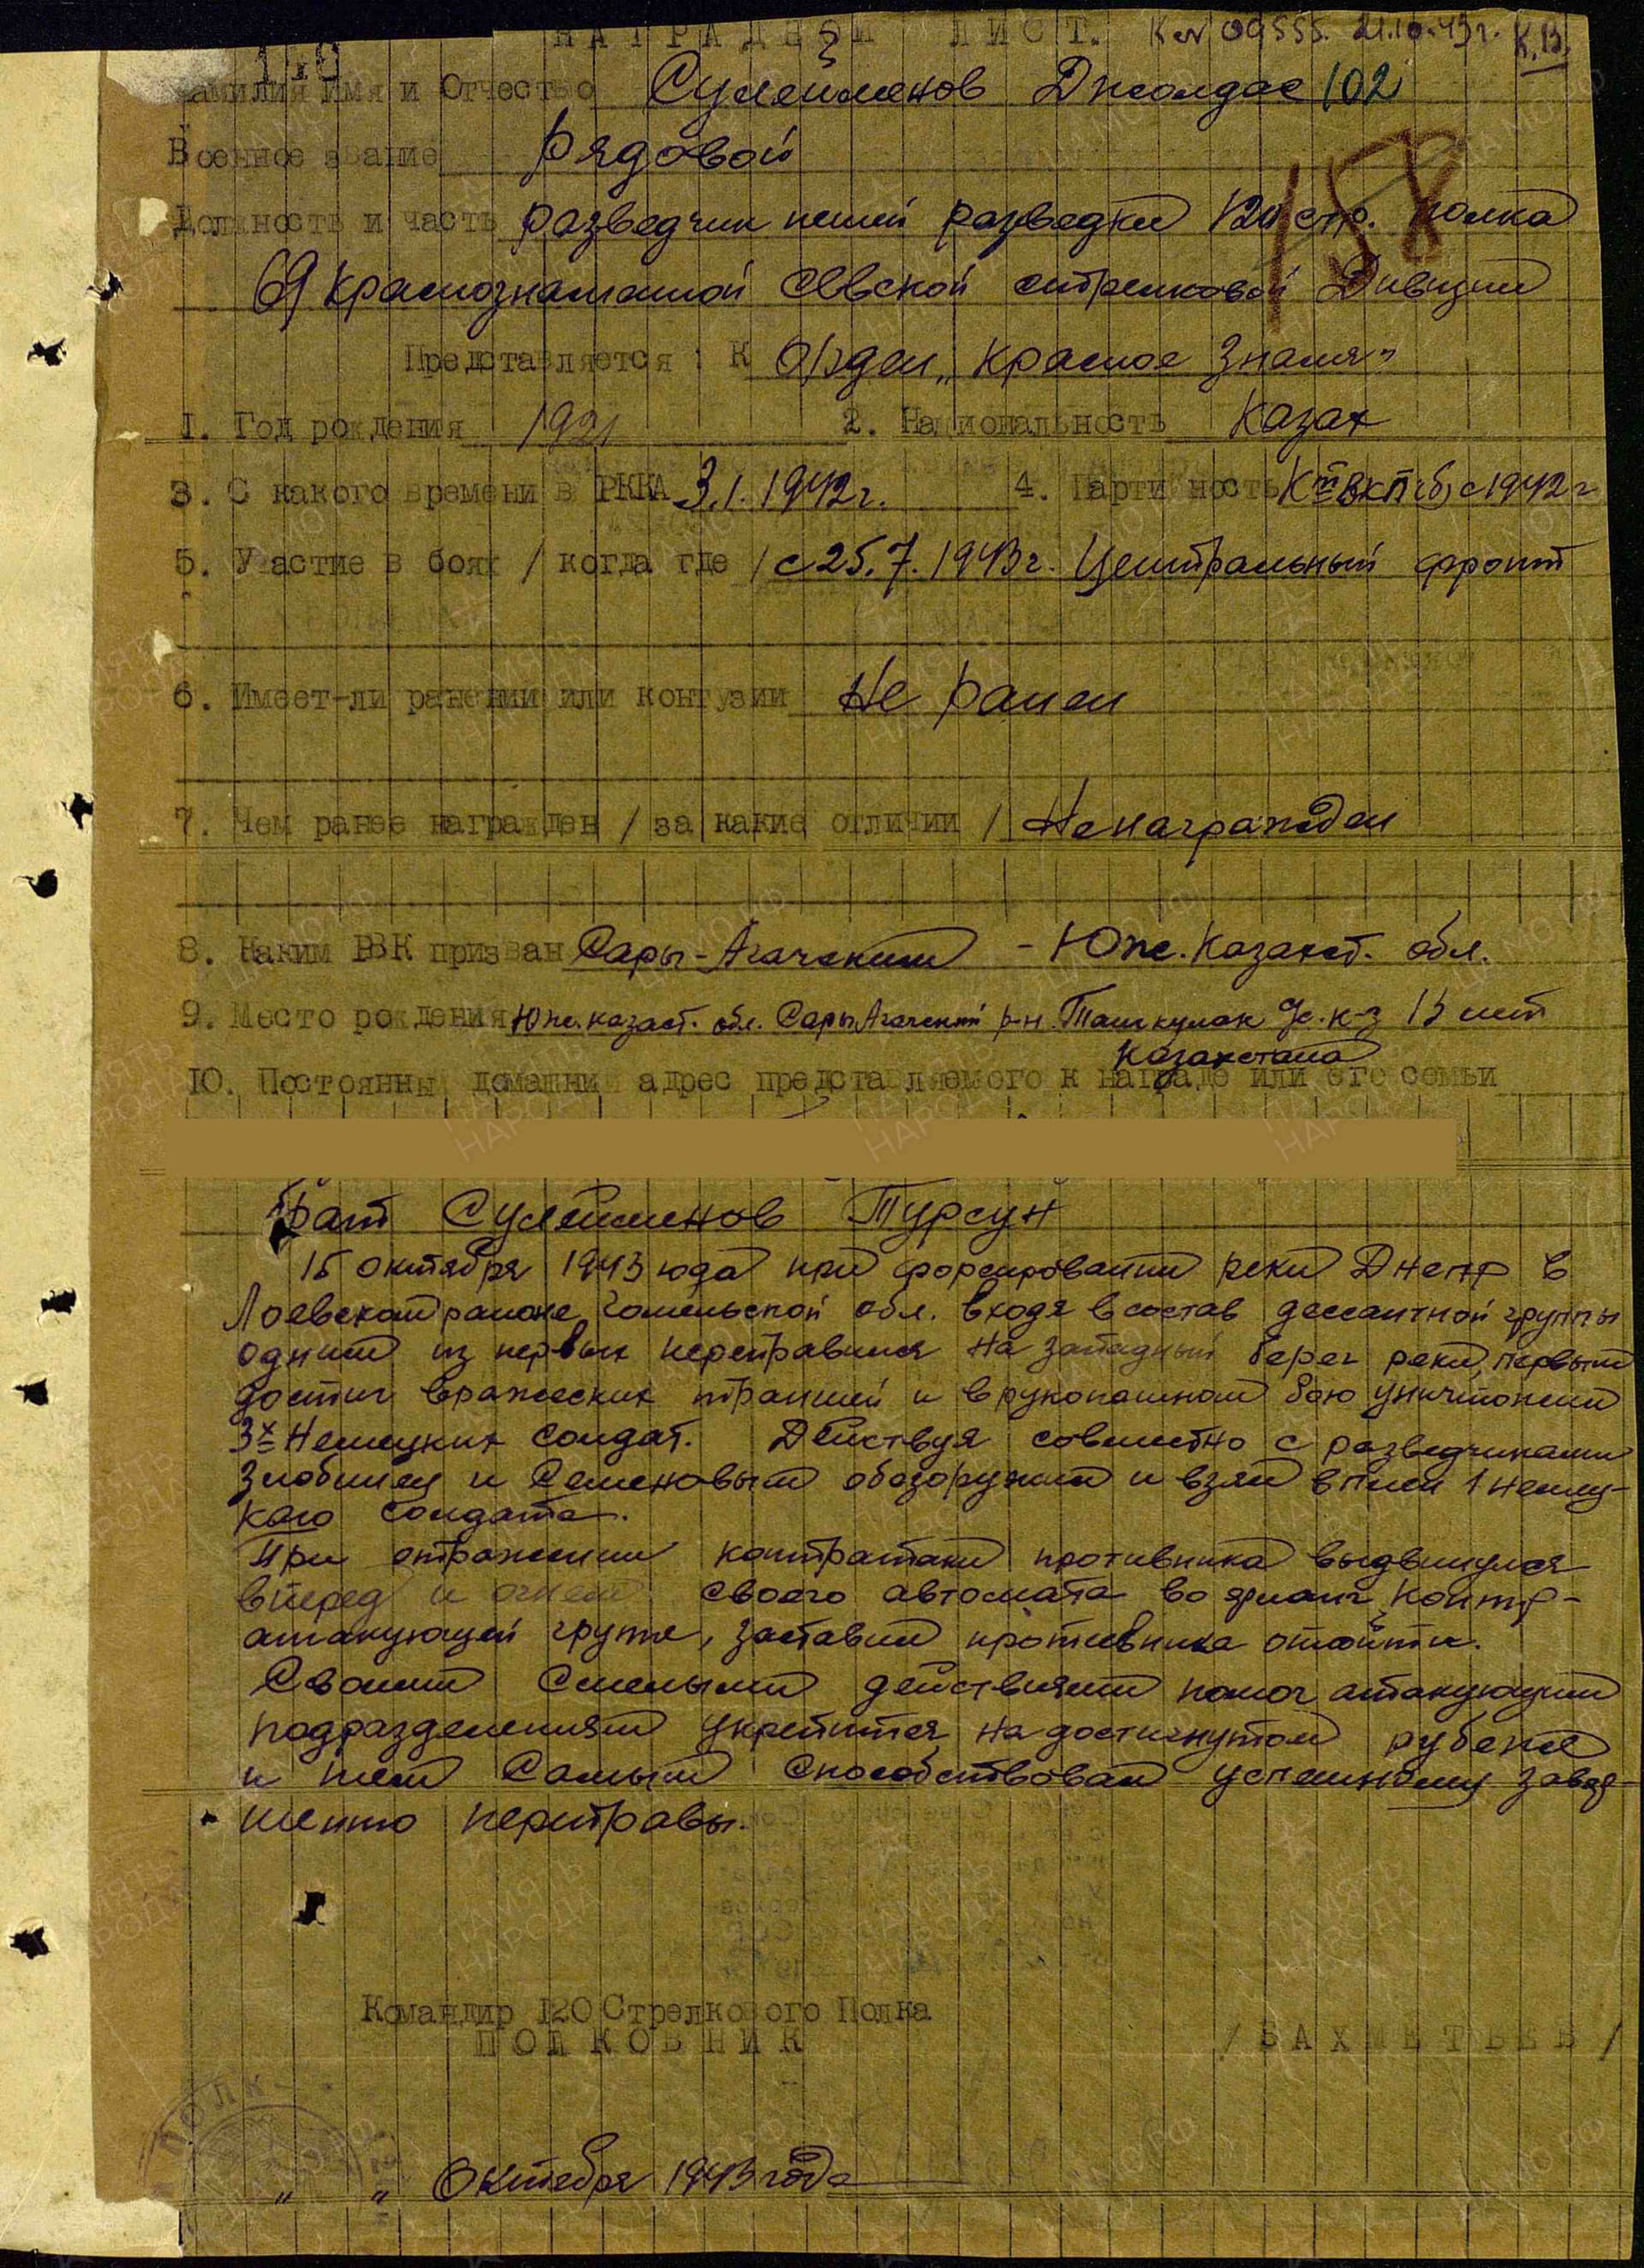 НАГРАДНОЙ ЛИСТ. К вх 09555. 21.10.43г. К.З.
140
Фамилия Имя и Отчество Сулейменов Джолдас 102
Военное звание рядовой
158
Должность и часть разведчик пешей разведки 120 стр. полка
69 Краснознаменной Севской стрелковой Дивизии
Представляется: К Орден „Красное Знамя"
1. Год рождения 1921 2. Национальность Казах
3. С какого времени в РККА 3.1.1942г. 4. Партийность Кт ВКП(б) с 1942г
5. Участие в боях / когда где / с 25.7.1943г. Центральный фронт
6. Имеет-ли ранении или контузии Не ранен
7. Чем ранее награжден / за какие отличии / Ненагражден
8. Каким РВК призван Сары-Агачским - Юж. Казахст. обл.
9. Место рождения Юж. казахст. обл. Сары Агачский р-н Ташкулак к-з 13 лет
Казахстана
10. Постоянны домашний адрес представляемого к награде или его семьи
брат Сулейменов Турсун
15 октября 1943 года при форсировании реки Днепр в
Лоевском районе Гомельской обл. входя в состав дессантной группы
одним из первых переправился на западный берег реки, первым
достиг вражеских траншей и в рукопашном бою уничтожил
3х Немецких солдат. Действуя совместно с разведчиками
Злобиным и Семеновым обезоружил и взял в плен 1 немец-
кого солдата.
При отражении контратаки противника выдвинулся
вперед и огнем своего автомата во фланг контр-
атакующей группе, заставил противника отойти.
Своими смелыми действиями помог атакующим
подразделениям укрепится на достигнутом рубеже
и тем самым способствовал успешному завер-
шению переправы.
Командир 120 Стрелкового Полка
ПОЛКОВНИК / БАХМЕТЬЕВ /
„ „ Октября 1943 года